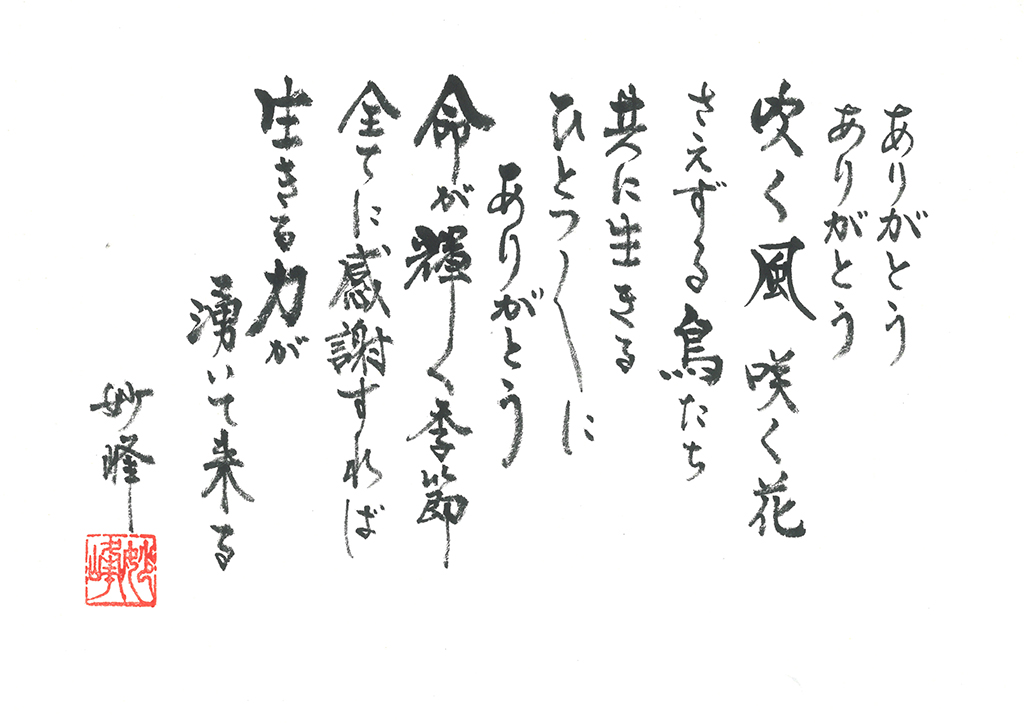 ありがとう
ありがとう
吹く風 咲く花
さえずる鳥たち
共に生きる
ひとつ〱に
ありがとう
命が輝く季節
全てに感謝すれば
生きる力が
湧いて来る
妙峰
妙峰